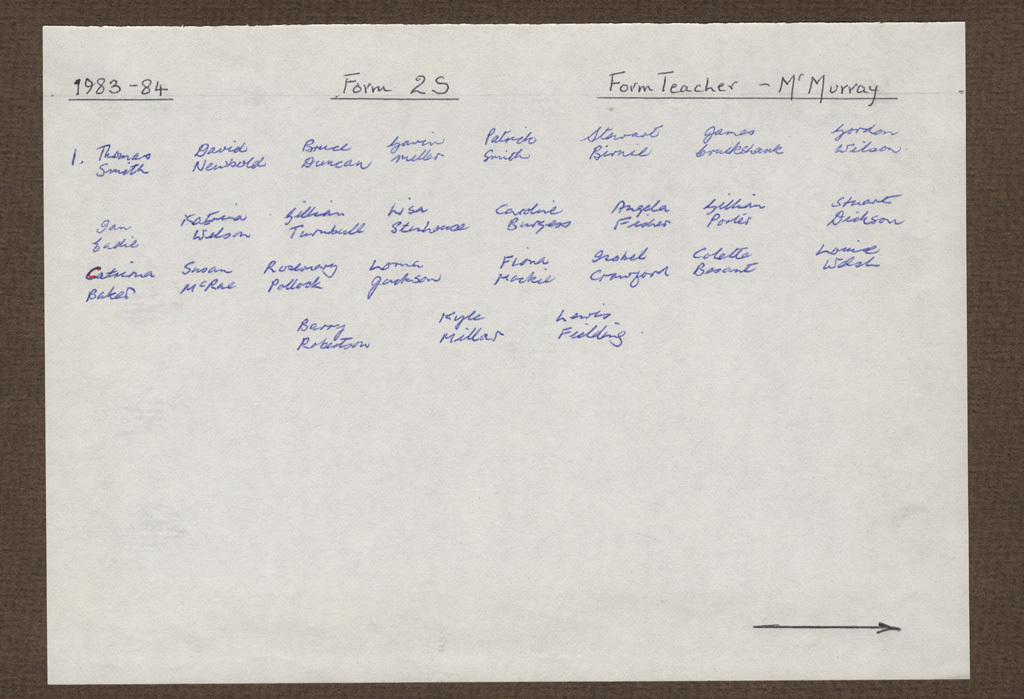 1983-84 Form 2S Form Teacher - Mr Murray
1. Thomas David Bruce Gavin Patrick Stewart James Gordon
Smith Newbold Duncan Miller Smith Birnie Cruikshank Wilson
Ian Katrina Gillian Lisa Caroline Angela Gillian Stuart
Eadie Wilson Turnbull Stenhouse Burgess Fisher Porter Dickson
Catriona Susan Rosemary Lorna Fiona Isobel Colette Louise
Baker McRae Pollock Jackson Mackie Crawford Besant Walsh
Barry Kyle Lewis
Robertson Millar Fielding